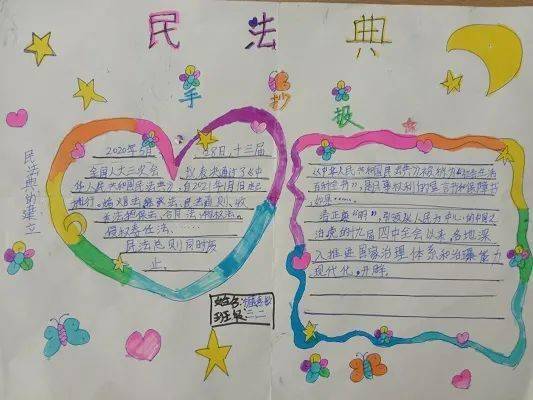 民法典
手抄报
民法典的建立
2020年5月28日,十三届
全国人大三次会议表决通过了《中
华人民共和国民法典》,自2021年1月1日起
施行。婚姻法、继承法、民法通则、收
养法、担保法、合同法、物权法、
侵权责任法、
民法总则同时废
止。
《中华人民共和国民法典》被称为“社会生活
百科全书”,是民事权利的宣言书和保障书
如果……
者正奠“明”,引领以人民为中心的中国又
治疾的十九届四中全会以来,各地深
入推进国家治理体系和治理能力
现代化。开辟
姓名:
班级:三.二